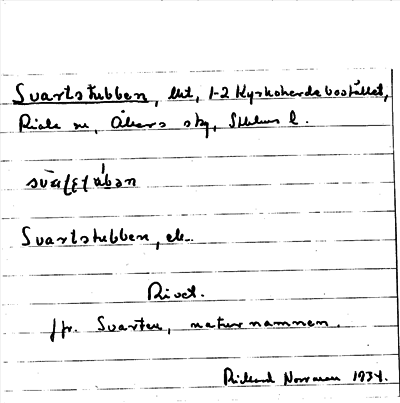 Svartstubben, lht, 1-2 Kyrkoherdebostället,
Riala sn, Åkers skg, Sthlms l.
Svartstubben, ek.
Rivet.
Jfr. Svarten, naturnamnen.
Rickard Norrman 1934.